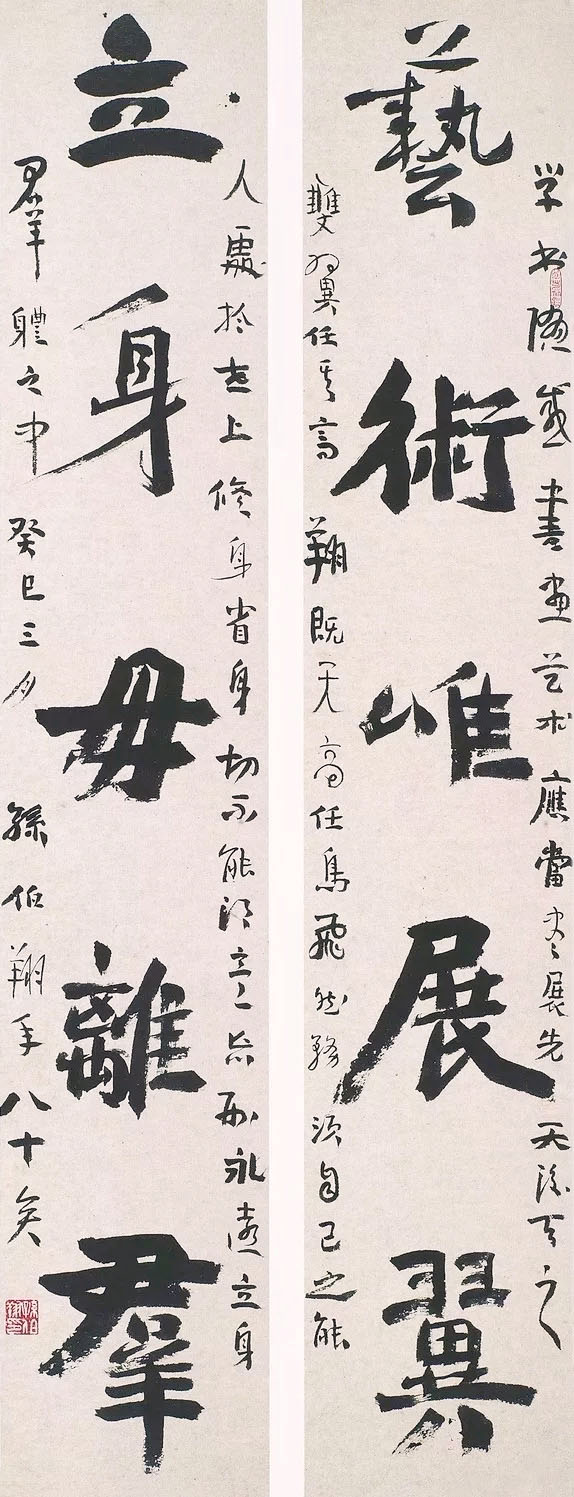 藝術唯展翼
学书隨感書画艺术應當尽展先天後天之
雙翼任其高翔既天高任鳥飛然務須自己之能
立身毋離羣
人處於世上修身省身切不能須立忘形永遠立身
君羊體之中癸巳三月孫伯翔年八十矣